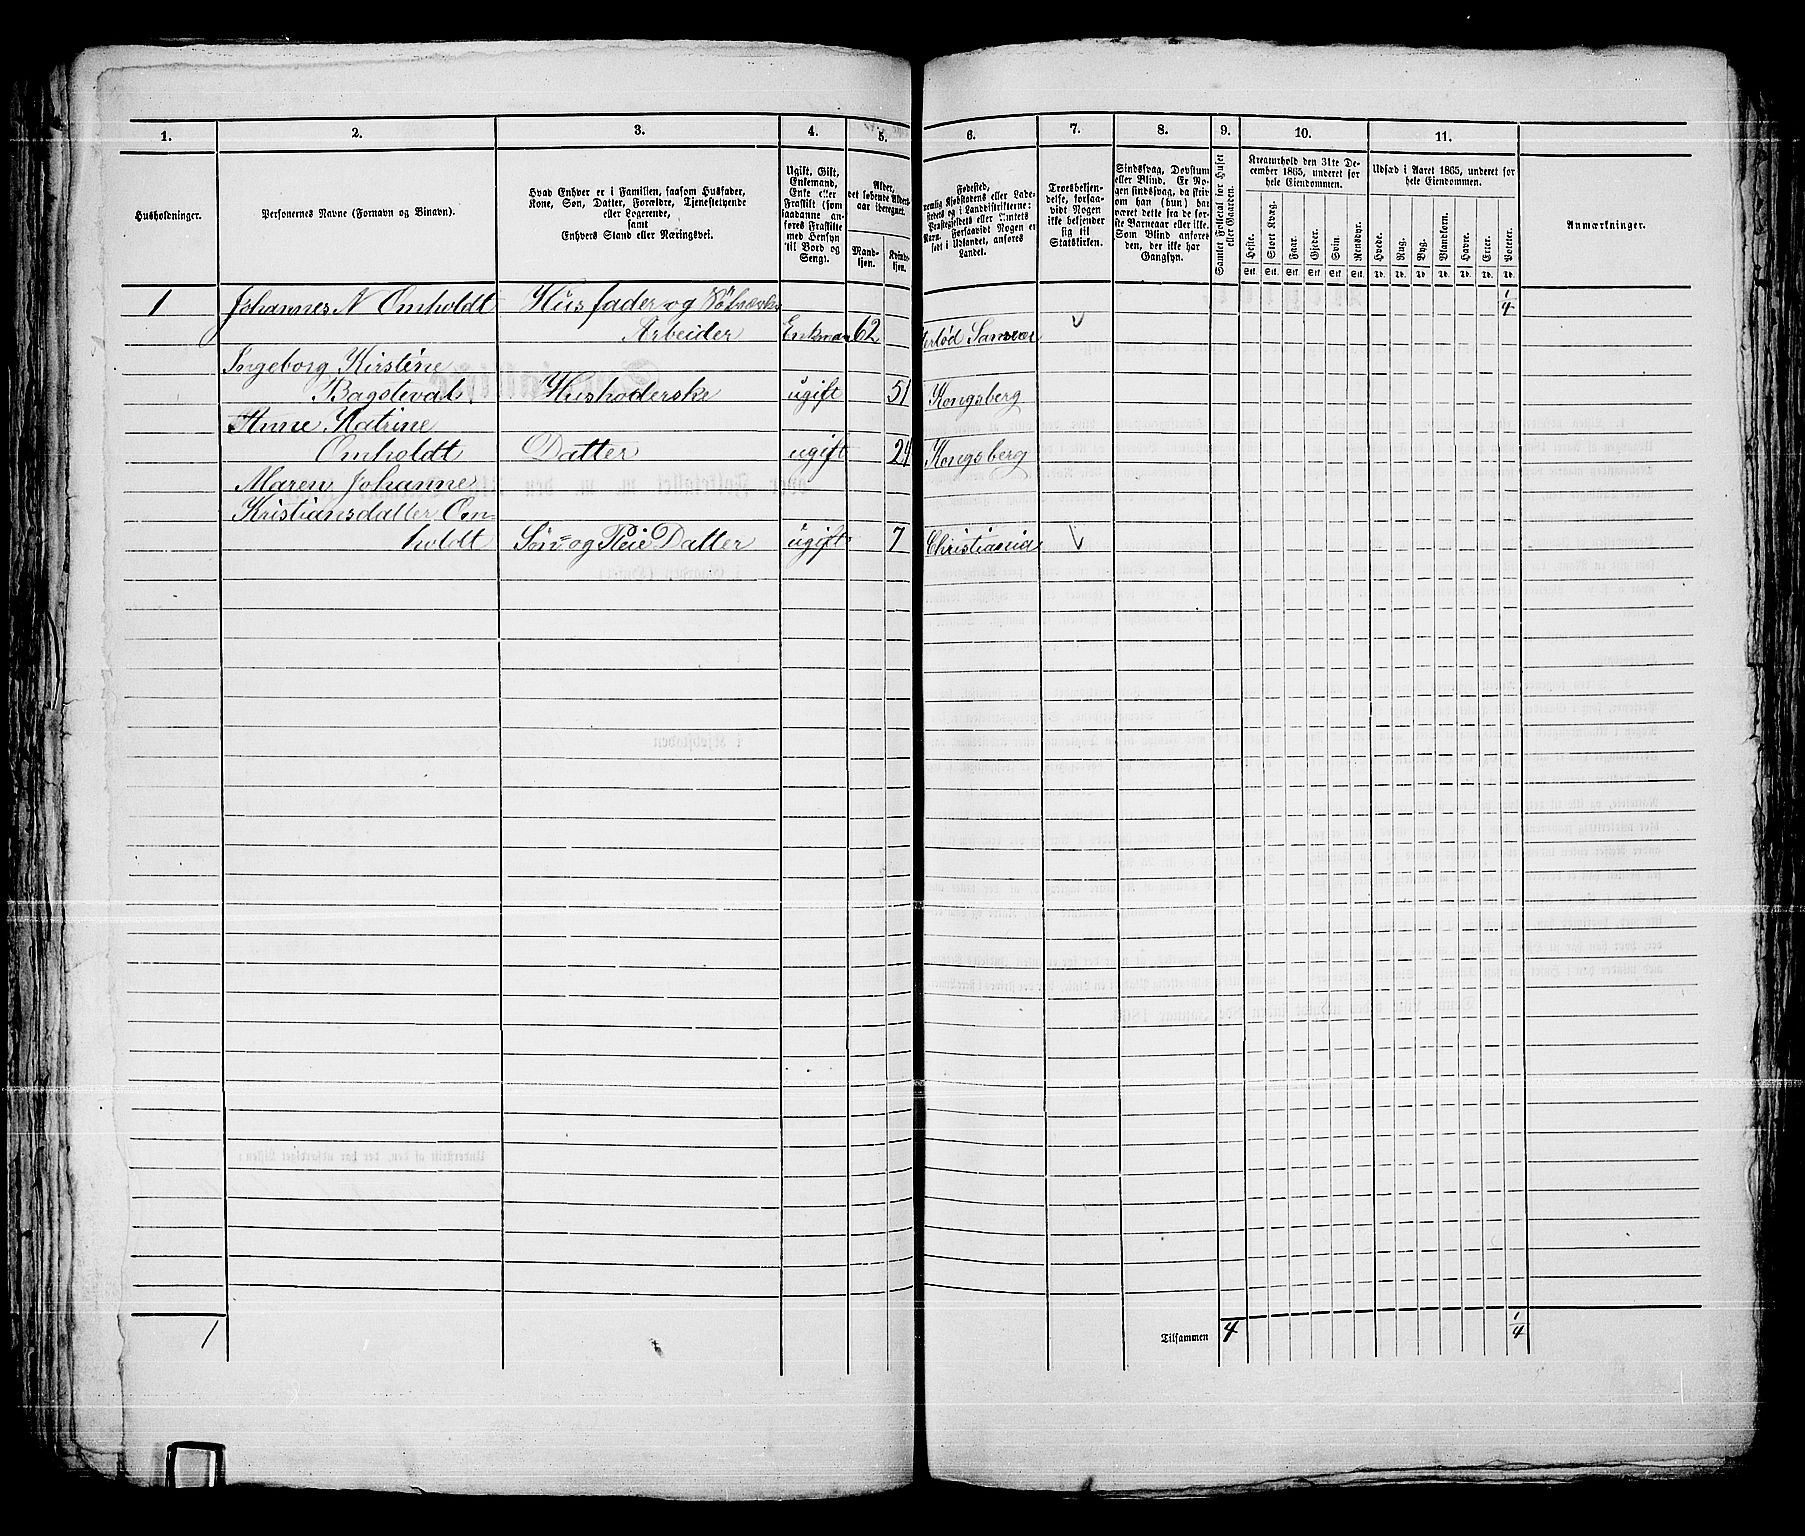 1. 2. 3. 4. 5. 6. 7. 8. 9. 10. 11.
Husholdninger.
Personernes Navne (Fornavn og Binavn).
Hvad Enhver er i Familien, saasom Husfader,
Kone, Søn, Datter, Forældre, Tjenestetyende
eller Logerende,
samt
Enhvers Stand eller Næringsvei.
Ugift, Gift,
Enkemand,
Enke eller
Fraskilt (som
saadanne an-
føres Fraskilte
med Hensyn
til Bord og
Seng).
Alder,
det løbende Alders-
aar iberegnet.
Mand-
kjøn.
Kvinde-
kjøn.
Fødested,
nemlig Kjøbstadens eller Lade-
stedets og i Landdistrikterne:
Præstegjeldets eller Amtets
Navn. Forsaavidt Nogen er
født i Udlandet, anføres
Landet.
Troesbekjen-
delse, forsaa-
vidt Nogen
ikke bekjender
sig til
Statskirken.
Sindssvag, Døvstum
eller Blind. Er No-
gen sindssvag, da skriv
om han (hun) har
været dette fra de før-
ste Barneaar eller ikke.
Som Blind anføres
den, der ikke har
Gangsyn.
Samlet Folketal for Huset
eller Gaarden.
Kreaturhold den 31te De-
cember 1865, underet for
hele Eiendommen.
Heste. Stort Kvæg. Faar. Gjeder. Svin. Rensdyr.
Stk. Stk. Stk. Stk. Stk. Stk.
Udsæd i Aaret 1865, underet for
hele Eiendommen.
Hvede. Rug. Byg. Blandkorn. Havre. Erter. Poteter.
Td. Td. Td. Td. Td. Td. Td.
Anmærkninger.
1 Johannes N Omholdt Husfader og Sølvverks 1/4
Arbeider Enkman 62 Sansvær
Ingeborg Kirstine
Husholderske ugift 51 Kongsberg
Anne Katrine
Omholdt Datter ugift 24 Kongsberg
Maren Johanne
Kristiansdatter Om=
holdt Søn= og Pleie Datter ugift 7 Christiania
1 Tilsammen 4 1/4